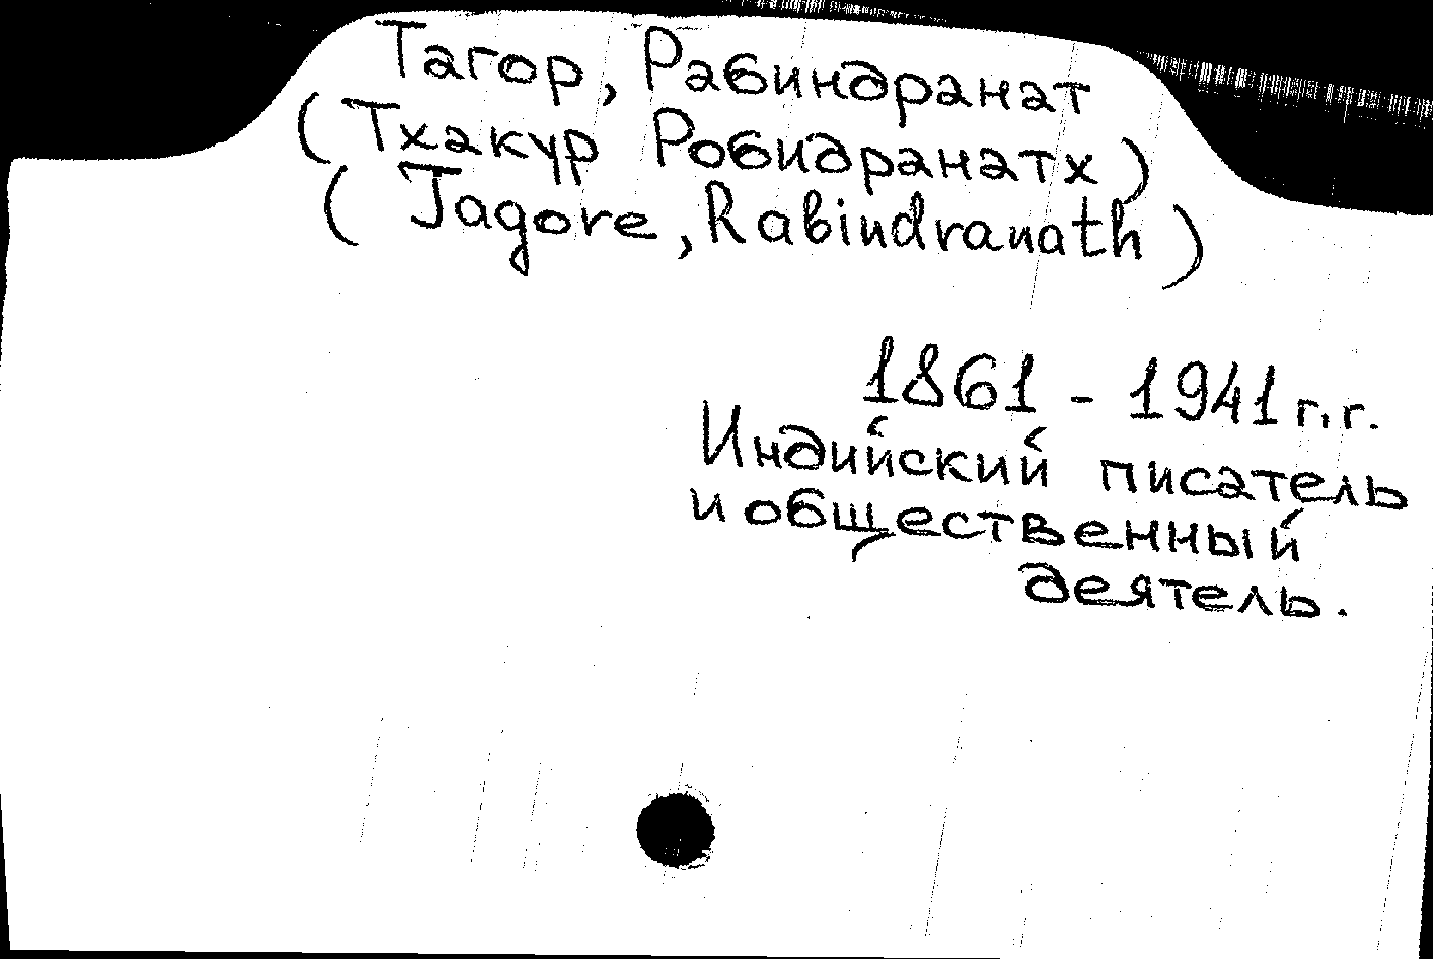 Тагор, Рабиндранат
(Тхакур Робидранатх)
(Tagore, Rabindranath)
1861 - 1941 г.г.
Индийский писатель
и общественный
деятель.